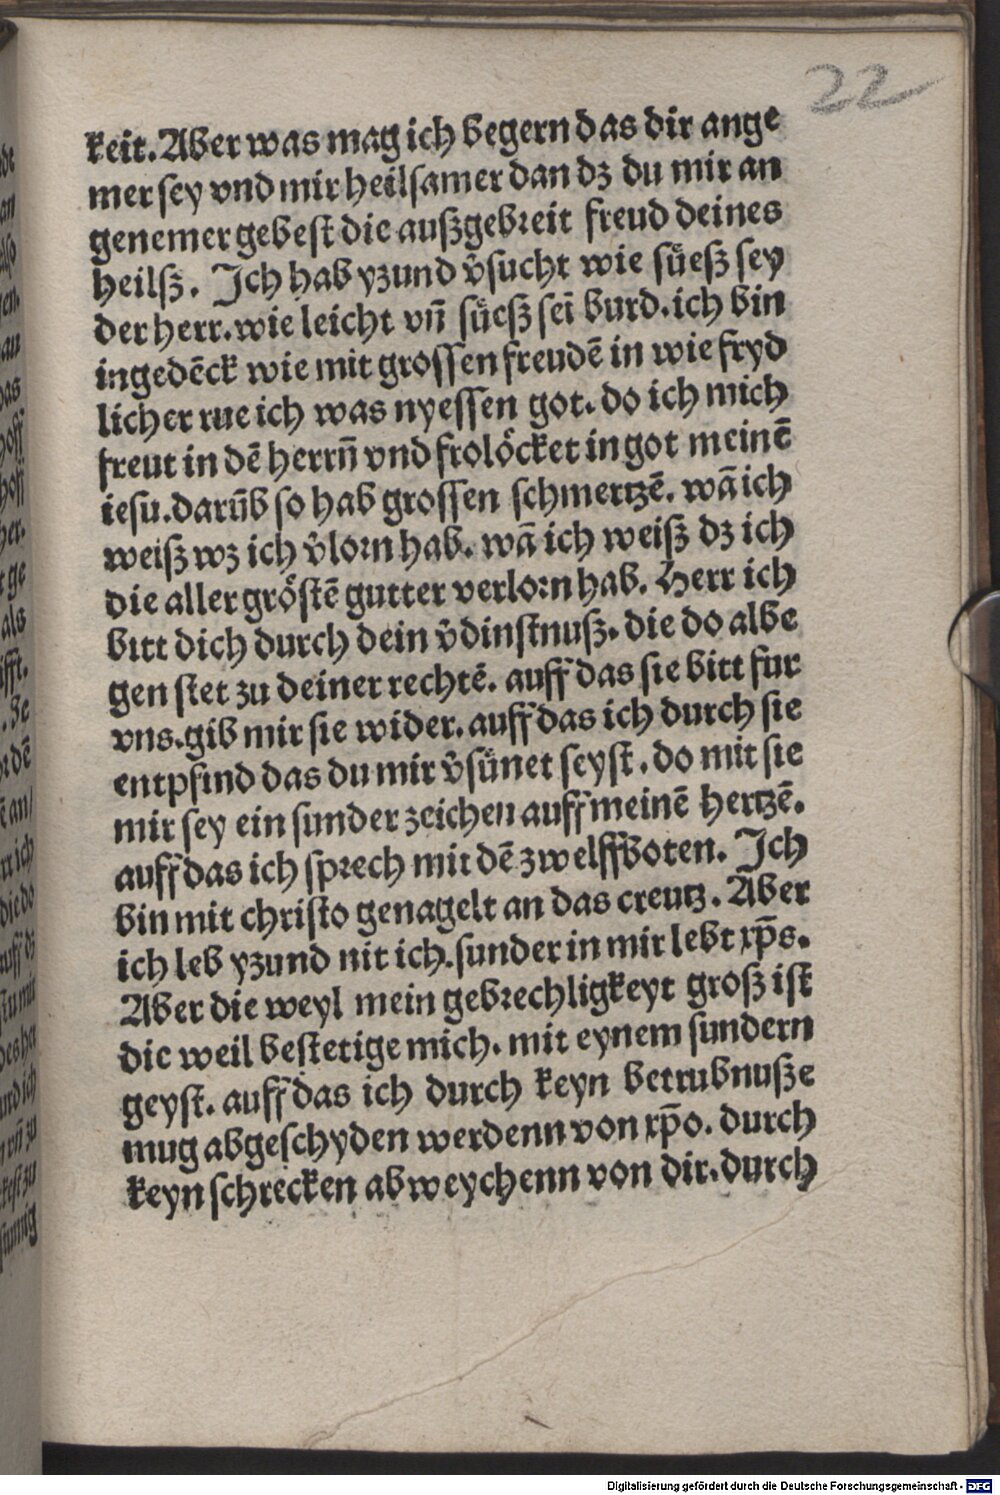 22
keit. Aber was mag ich begern das dir ange
mer sey vnd mir heilsamer dan dz du mir an
genemer gebest die außgebreit freud deines
heilsz. Ich hab yzund v̄sucht wie süesz sey
der herr. wie leicht vn̄ süesz sei̅ burd. ich bin
ingedēck wie mit grossen freudē in wie fryd
licher rue ich was nyessen got. do ich mich
freut in dē herrn̄ vnd frolöcket in got meinē
iesu. darūb so hab grossen schmertzē. wā ich
weiß wz ich v̄lorn hab. wā ich weiß dz ich
die aller gröstē gutter verlorn hab. Herr ich
bitt dich durch dein v̄dinstnuß. die do albe
gen stet zu deiner rechtē. auff das sie bitt fur
vns. gib mir sie wider. auff das ich durch sie
entpfind das du mir v̄sünet seyst. do mit sie
mir sey ein sunder zeichen auff meinē hertzē.
auff das ich sprech mit dē zwelffboten. Ich
bin mit christo genagelt an das creutz. Aber
ich leb yzund nit ich. sunder in mir lebt xp̄s.
Aber die weyl mein gebrechligkeyt groß ist
die weil bestetige mich. mit eynem sundern
geyst. auff das ich durch keyn betrubnuße
mug abgeschyden werdenn von xp̄o. durch
keyn schrecken abweychenn von dir. durch
Digitalisierung gefördert durch die Deutsche Forschungsgemeinschaft - DFG